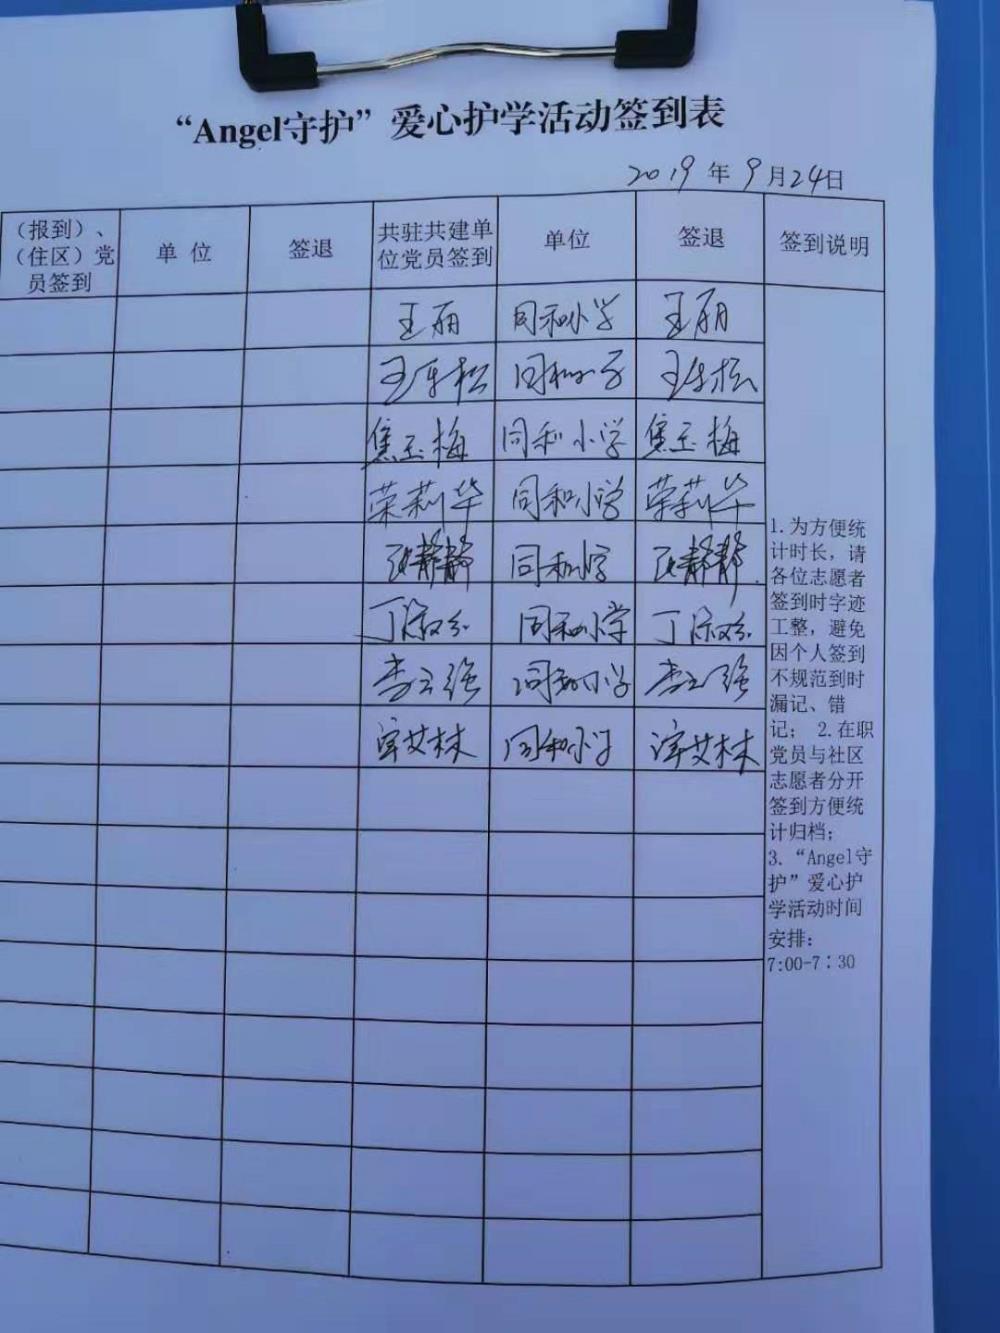 “Angel守护”爱心护学活动签到表
2019年9月24日
（报到）、
（住区）党
员签到
单 位
签退
共驻共建单
位党员签到
单位
签退
签到说明
王丽 同和小学 王丽
同和小学
焦玉梅 同和小学 焦玉梅
荣莉华 同和小学 荣莉华
张静静 同和小学 张静静
同和小学
李云强 同和小学 李云强
艾林 同和小学 艾林
1.为方便统
计时长，请
各位志愿者
签到时字迹
工整，避免
因个人签到
不规范到时
漏记、错
记； 2.在职
党员与社区
志愿者分开
签到方便统
计归档；
3.“Angel守
护”爱心护
学活动时间
安排：
7:00-7：30